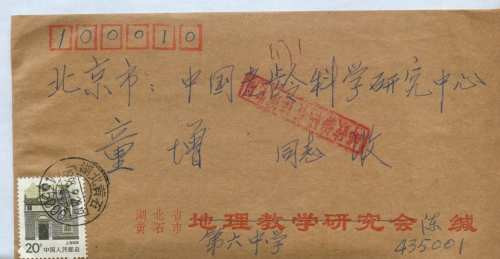 100010
北京市：中国老龄科学研究中心
童增 同志 收
湖北省
黄石市 地理教学研究会 陈缄
第六中学
435001
20分 中国人民邮政